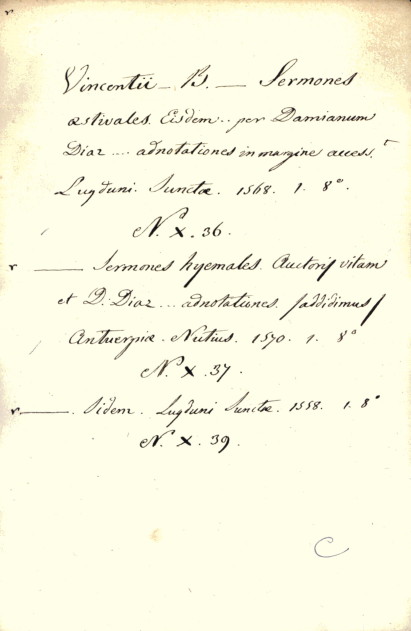 Vincentii — B. — Sermones
æstivales. Eisdem .. per Damianum
Diaz .... adnotationes in margine access.t
Lugduni. Junctæ. 1568. 1. 8°.
N. X. 36.
r — Sermones hyemales. Auctoris vitam
et D. Diaz ... adnotationes. /addidimus/
Antuerpiæ. Nutius. 1570. 1. 8°
N. X. 37.
r — . Iidem. Lugduni Junctæ. 1558. 1. 8°
N. X. 39.
C